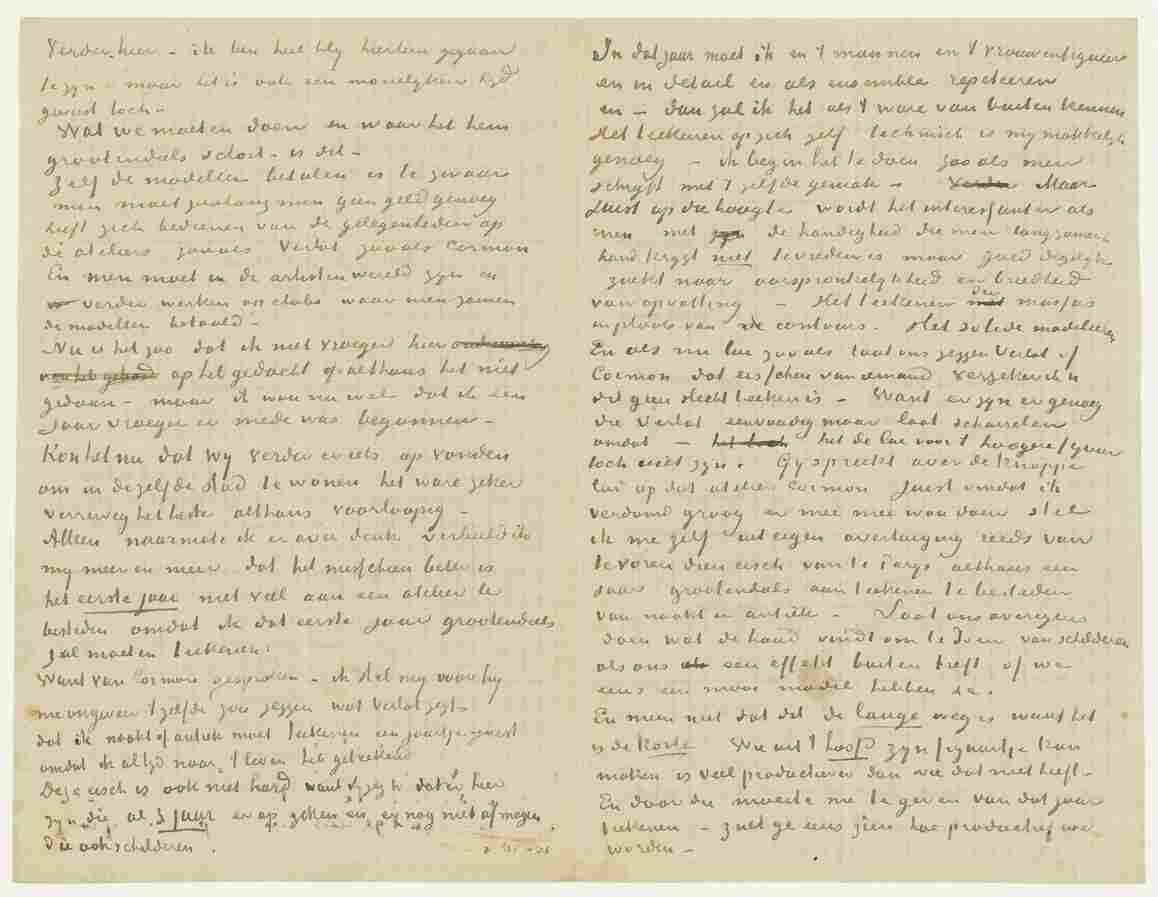 Verder, hier – ik ben heel bly hierheen gegaan
te zyn – maar het is ook een moeielyken tyd
geweest toch –
Wat we moeten doen en waar het hem
grootendeels schort – is dit –
Zelf de modellen betalen is te zwaar
men moet zoolang men geen geld genoeg
heeft zich bedienen van de gelegenheden op
de ateliers zooals Verlat zooals Cormon
En men moet in de artistenwereld zyn en
verder werken op clubs waar men samen
de modellen betaald –
Nu is het zoo dat ik niet vroeger hier
op het gedacht of althans het niet
gedaan – maar ik wou nu wel dat ik een
jaar vroeger er mede was begonnen –
Kon het nu dat wy verder er iets op vonden
om in dezelfde stad te wonen het ware zeker
verreweg het beste althans voorloopig –
Alleen naarmate ik er over denk verbeeld ik
my meer en meer dat het misschien beter is
het eerste jaar niet veel aan een atelier te
besteden omdat ik dat eerste jaar grootendeels
zal moeten teekenen.
Want van Cormon gesproken – ik stel my voor hy
me ongeveer 't zelfde zou zeggen wat Verlat zegt –
dat ik naakt of antiek moet teekenen een jaartje juist
omdat ik altyd naar 't leven heb geteekend
Deze eisch is ook niet hard want ik zeg U dat er hier
zyn die al 3 jaar er op zitten en er nog niet af mogen
die ook schilderen.
In dat jaar moet ik en 't mannen en 't vrouwenfiguur
en in detail en als ensemble repeteeren
en – dan zal ik het als 't ware van buiten kennen
Het teekenen op zich zelf technisch is my makkelyk
genoeg – ik begin het te doen zooals men
schryft met 't zelfde gemak – Verder Maar
Juist op die hoogte wordt het interessanter als
men met zyn de handigheid die men langzamer
hand krygt niet tevreden is maar goed degelyk
zoekt naar oorspronkelykheid en breedheid
van opvatting – Het teekenen der massas
in plaats van de contours. Het solide modeleeren
En als nu lui zooals laat ons zeggen Verlat of
Cormon dat eischen van iemand verzeker ik u
dit geen slecht teeken is – Want er zyn er genoeg
die Verlat eenvoudig maar laat scharrelen
omdat – het toch het de lui voor 't hoogere figuur
toch niet zyn. Gy spreekt over de knappe
lui op dat atelier Cormon Juist omdat ik
verdomd graag er mee mee wou doen stel
ik me zelf uit eigen overtuiging reeds van
te voren dien eisch van te Parys althans een
jaar grootendeels aan teekenen te besteden
van naakt en antiek – Laat ons overigens
doen wat de hand vindt om te doen van schilderen
als ons als een effekt buiten treft of we
eens een mooi model hebben &c.
En meen niet dat dit de lange weg is want het
is de korte Wie uit 't hoofd zyn figuurtje kan
maken is veel productiever dan wie dat niet heeft –
En door die moeite me te geven van dat jaar
teekenen – zult ge eens zien hoe productief we
worden –